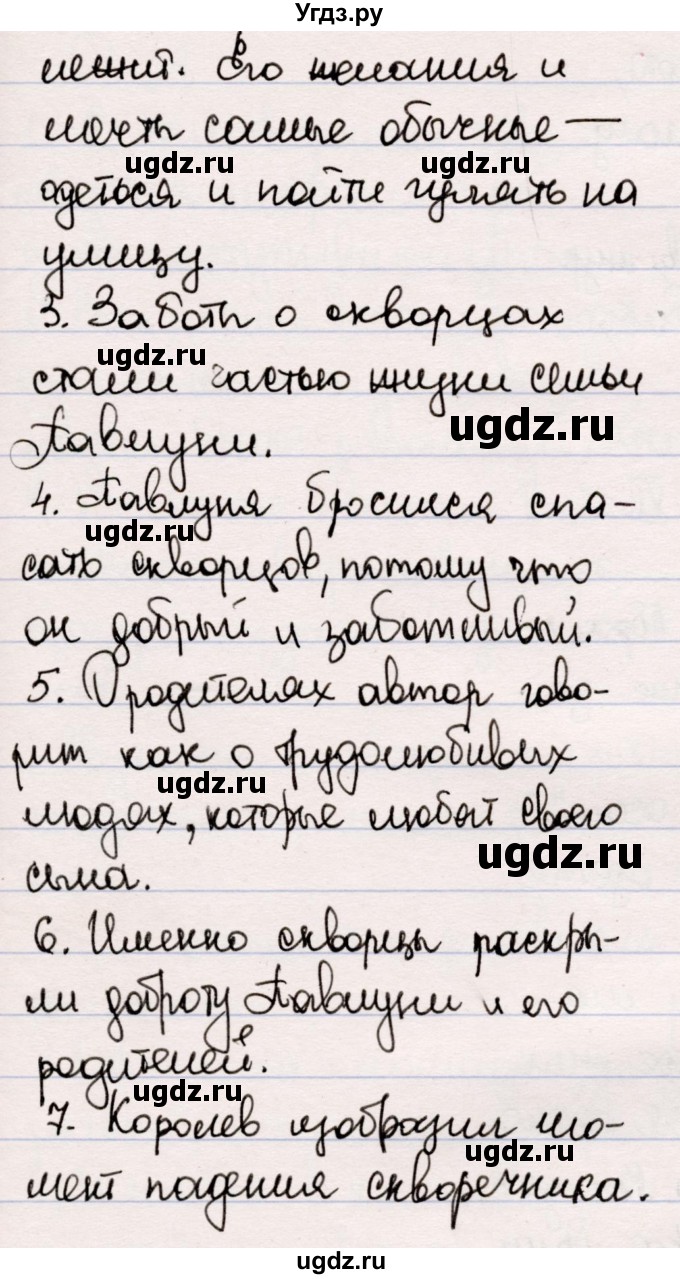 Угдз.ру
лежит. Его желания и
мечты самые обычные —
ugdz.ru ugdz.ru
одеться и пойти гулять на
улицу.
3. Заботы о скворцах
ugdz.ru
стали частью жизни семьи
ugdz.ru
Павлуни.
4. Павлуня бросился спа-
ugdz.ru
сать скворцов, потому что
он добрый и заботливый.
5. О родителях автор гово-
рит как о трудолюбивых
ugdz.ru
людях, которые любят своего
ugdz.ru
сына.
6. Именно скворцы раскры-
ли доброту Павлуни и его
родителей.
ugdz.ru
7. Королев изобразил мо-
ugdz.ru
мент падения скворечника.
ugdz.ru